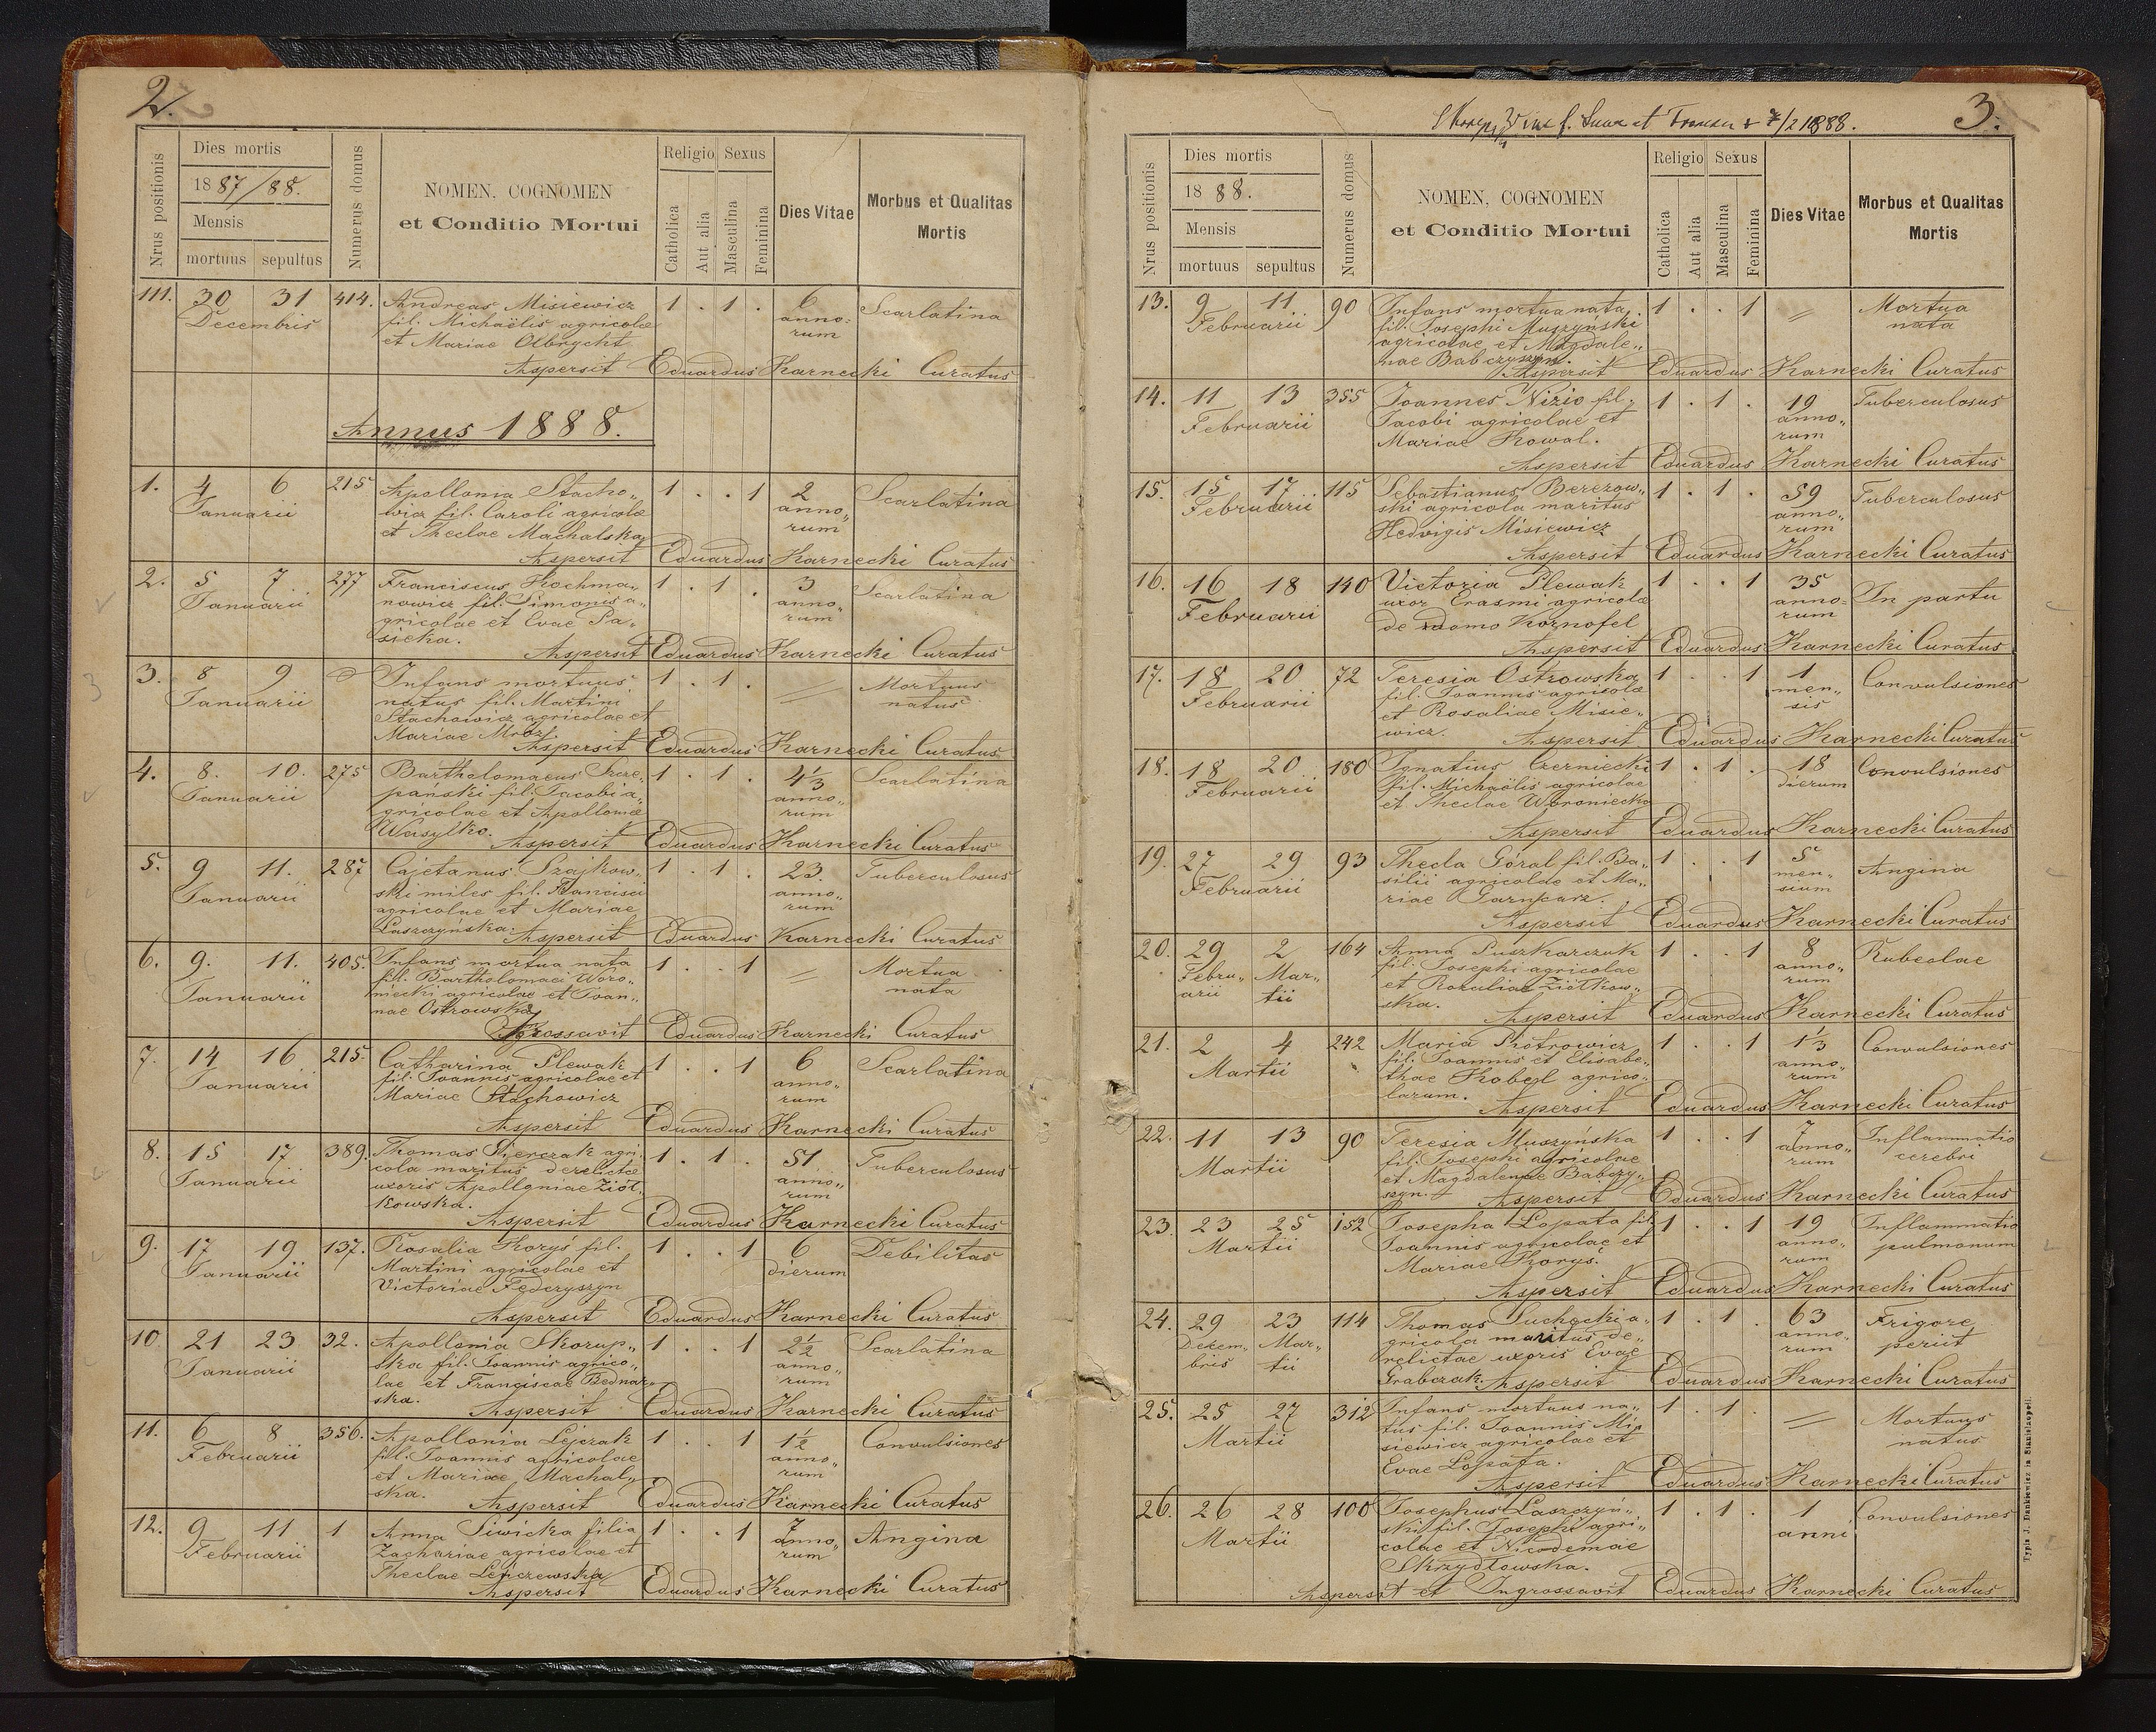 2.
Nrus positionis
Dies mortis
1887/88.
Mensis
mortuus sepultus
Numerus domus
NOMEN, COGNOMEN
et Conditio Mortui
Religio
Catholica
Aut alia
Sexus
Masculina
Feminina
Dies Vitae
Morbus et Qualitas
Mortis
111. 30 31 414. Andreas Misiewicz 1 . 1 . 6 Scarlatina
Decembris fil. Michaëlis agricolae anno=
et Mariae Olbrycht rum
Aspersit Eduardus Karnecki Curatus
Annus 1888.
1. 4 6 215 Apollonia Stacho„ 1 . . 1 2 Scarlatina
Januarii wicz fil. Caroli agricolae anno„
et Theclae Machalska rum
Aspersit Eduardus Karnecki Curatus
2. 5 7 277 Franciscus Kochma„ 1 . 1 . 3 Scarlatina
Januarii nowicz fil. Simonis a„ anno„
gricolae et Evae Pa„ rum
sieka.
Aspersit Eduardus Karnecki Curatus
3. 8 9 Infans mortuus 1 . 1 . Mortuus
Januarii natus fil. Martini natus
Stachowicz agricolae et
Mariae Mróz.
Aspersit Eduardus Karnecki Curatus
4. 8. 10. 275 Bartholomaeus Szcze„ 1 . 1 . 4 1/3 Scarlatina
Januarii pański fil. Jacobi a„ anno„
gricolae et Apolloniae rum
Wasylko. Aspersit Eduardus Karnecki Curatus
5. 9 11. 287 Cajetanus Szajkow„ 1 . 1 . 23. Tuberculosus
Januarii ski miles fil. Francisci anno„
agricolae et Mariae rum
Laszczyńska. Aspersit Eduardus Karnecki Curatus
6. 9. 11. 405. Infans mortua nata 1 . . 1 Mortua
Januarii fil. Bartholomaei Woro„ nata
niecki agricolae et Joan„
nae Ostrowska
Eduardus Karnecki Curatus
7. 14 16 215. Catharina Plewak 1 . . 1 6 Scarlatina
Januarii fil. Joannis agricolae et anno„
Mariae Stachowicz rum
Aspersit Eduardus Karnecki Curatus
8. 15 17 389. Thomas agri„ 1 . 1 . 51 Tuberculosus
Januarii cola maritus derelictae anno„
uxoris Apolloniae Ziół„ rum
kowska.
Aspersit Eduardus Karnecki Curatus
9. 17 19 137. Rosalia Koryś fil. 1 . . 1 6 Debilitas
Januarii Martini agricolae et dierum
Victoriae Fedczyszyn
Aspersit Eduardus Karnecki Curatus
10 21 23 32. Apollonia Skorup„ 1 . . 1 2 1/2 Scarlatina
Januarii ska fil. Joannis agrico„ anno„
lae et Franciscae Bednar„ rum
ska. Aspersit Eduardus Karnecki Curatus
11. 6 8 356. Apollonia Lejczak 1 . . 1 1 1/2 Convulsiones
Februarii fil. Joannis agricolae anno„
et Mariae Machal„ rum
ska. Aspersit Eduardus Karnecki Curatus
12. 9 11 1 Anna Siwicka filia 1 . . 1 7 Angina
Februarii Zachariae agricolae et anno„
Theclae Lejczewska rum
Aspersit Eduardus Karnecki Curatus
7/2 1888.
3.
Nrus positionis
Dies mortis
1888.
Mensis
mortuus sepultus
Numerus domus
NOMEN, COGNOMEN
et Conditio Mortui
Religio
Catholica
Aut alia
Sexus
Masculina
Feminina
Dies Vitae
Morbus et Qualitas
Mortis
13. 9 11 90 Infans mortua nata 1 . . 1 Mortua
Februarii fil. Josephi Muszyński nata
agricolae et Magdale„
nae Babczyszyn. Aspersit Eduardus Karnecki Curatus
14. 11 13 355 Joannes Nizio fil. 1 . 1 . 19 Tuberculosus
Februarii Jacobi agricolae et anno„
Mariae Kowal. rum
Aspersit Eduardus Karnecki Curatus
15. 15 17 115 Sebastianus Berezow„ 1 . 1 . 59 Tuberculosus
Februarii ski agricola maritus anno„
Hedvigis Misiewicz rum
Aspersit Eduardus Karnecki Curatus
16. 16 18 140 Victoria Plewak 1 . . 1 35 In partu
Februarii uxor Erasmi agricolae anno=
de domo Kornofel rum
Aspersit Eduardus Karnecki Curatus
17. 18 20 72 Teresia Ostrowska 1 . . 1 1 Convulsiones
Februarii fil. Joannis agricolae men„
et Rosaliae Misie„ sis
wicz. Aspersit Eduardus Karnecki Curatus
18. 18 20 180 Ignatius Czerniecki 1 . 1 . 18 Convulsiones
Februarii fil. Michaëlis agricolae dierum
et Theclae Woroniecka
Aspersit Eduardus Karnecki Curatus
19. 27 29 93 Thecla Góral fil. Ba„ 1 . . 1 5 Angina
Februarii silii agricolae et Ma„ men„
riae Garncarz. sium
Aspersit Eduardus Karnecki Curatus
20. 29 2 164 Anna Puszkarczuk 1 . . 1 8 Rubeolae
Febru„ Mar„ fil. Josephi agricolae anno„
arii tii et Rozaliae Ziółkow„ rum
ska. Aspersit Eduardus Karnecki Curatus
21. 2 4 242 Maria Piotrowicz 1 . . 1 1 1/3 Convulsiones
Martii fil. Joannis et Elisabe„ anno„
thae agrico„ rum
larum. Aspersit Eduardus Karnecki Curatus
22. 11 13 90 Teresia Muszyńska 1 . . 1 7 Inflammatio
Martii fil. Josephi agricolae anno„ cerebri
et Magdalenae Babczy„ rum
szyn. Aspersit Eduardus Karnecki Curatus
23. 23 25 152 Josepha Łopata fil. 1 . . 1 19 Inflammatio
Martii Joannis agricolae et anno„ pulmonum
Mariae Koryś. rum
Aspersit Eduardus Karnecki Curatus
24. 29 23 114 Thomas Suchacki a„ 1 . 1 . 63 Frigore
Decem„ Mar„ gricola maritus de„ anno„ periit
bris tii relictae uxoris Evae rum
Grabczak. Aspersit Eduardus Karnecki Curatus
25. 25 27 312 Infans mortuus na„ 1 . 1 . Mortuus
Martii tus fil. Joannis Mi„ natus
siewicz agricolae et
Evae Łopata.
Aspersit Eduardus Karnecki Curatus
26. 26 28 100 Josephus Laszczyń„ 1 . 1 . 1 Convulsiones
Martii ski fil. Josephi agri„ anni
colae et Nicodemae
Skrzydłowska.
Aspersit et Ingrossavit Eduardus Karnecki Curatus
Typis J. Dankiewicz in Stanislaupoli.